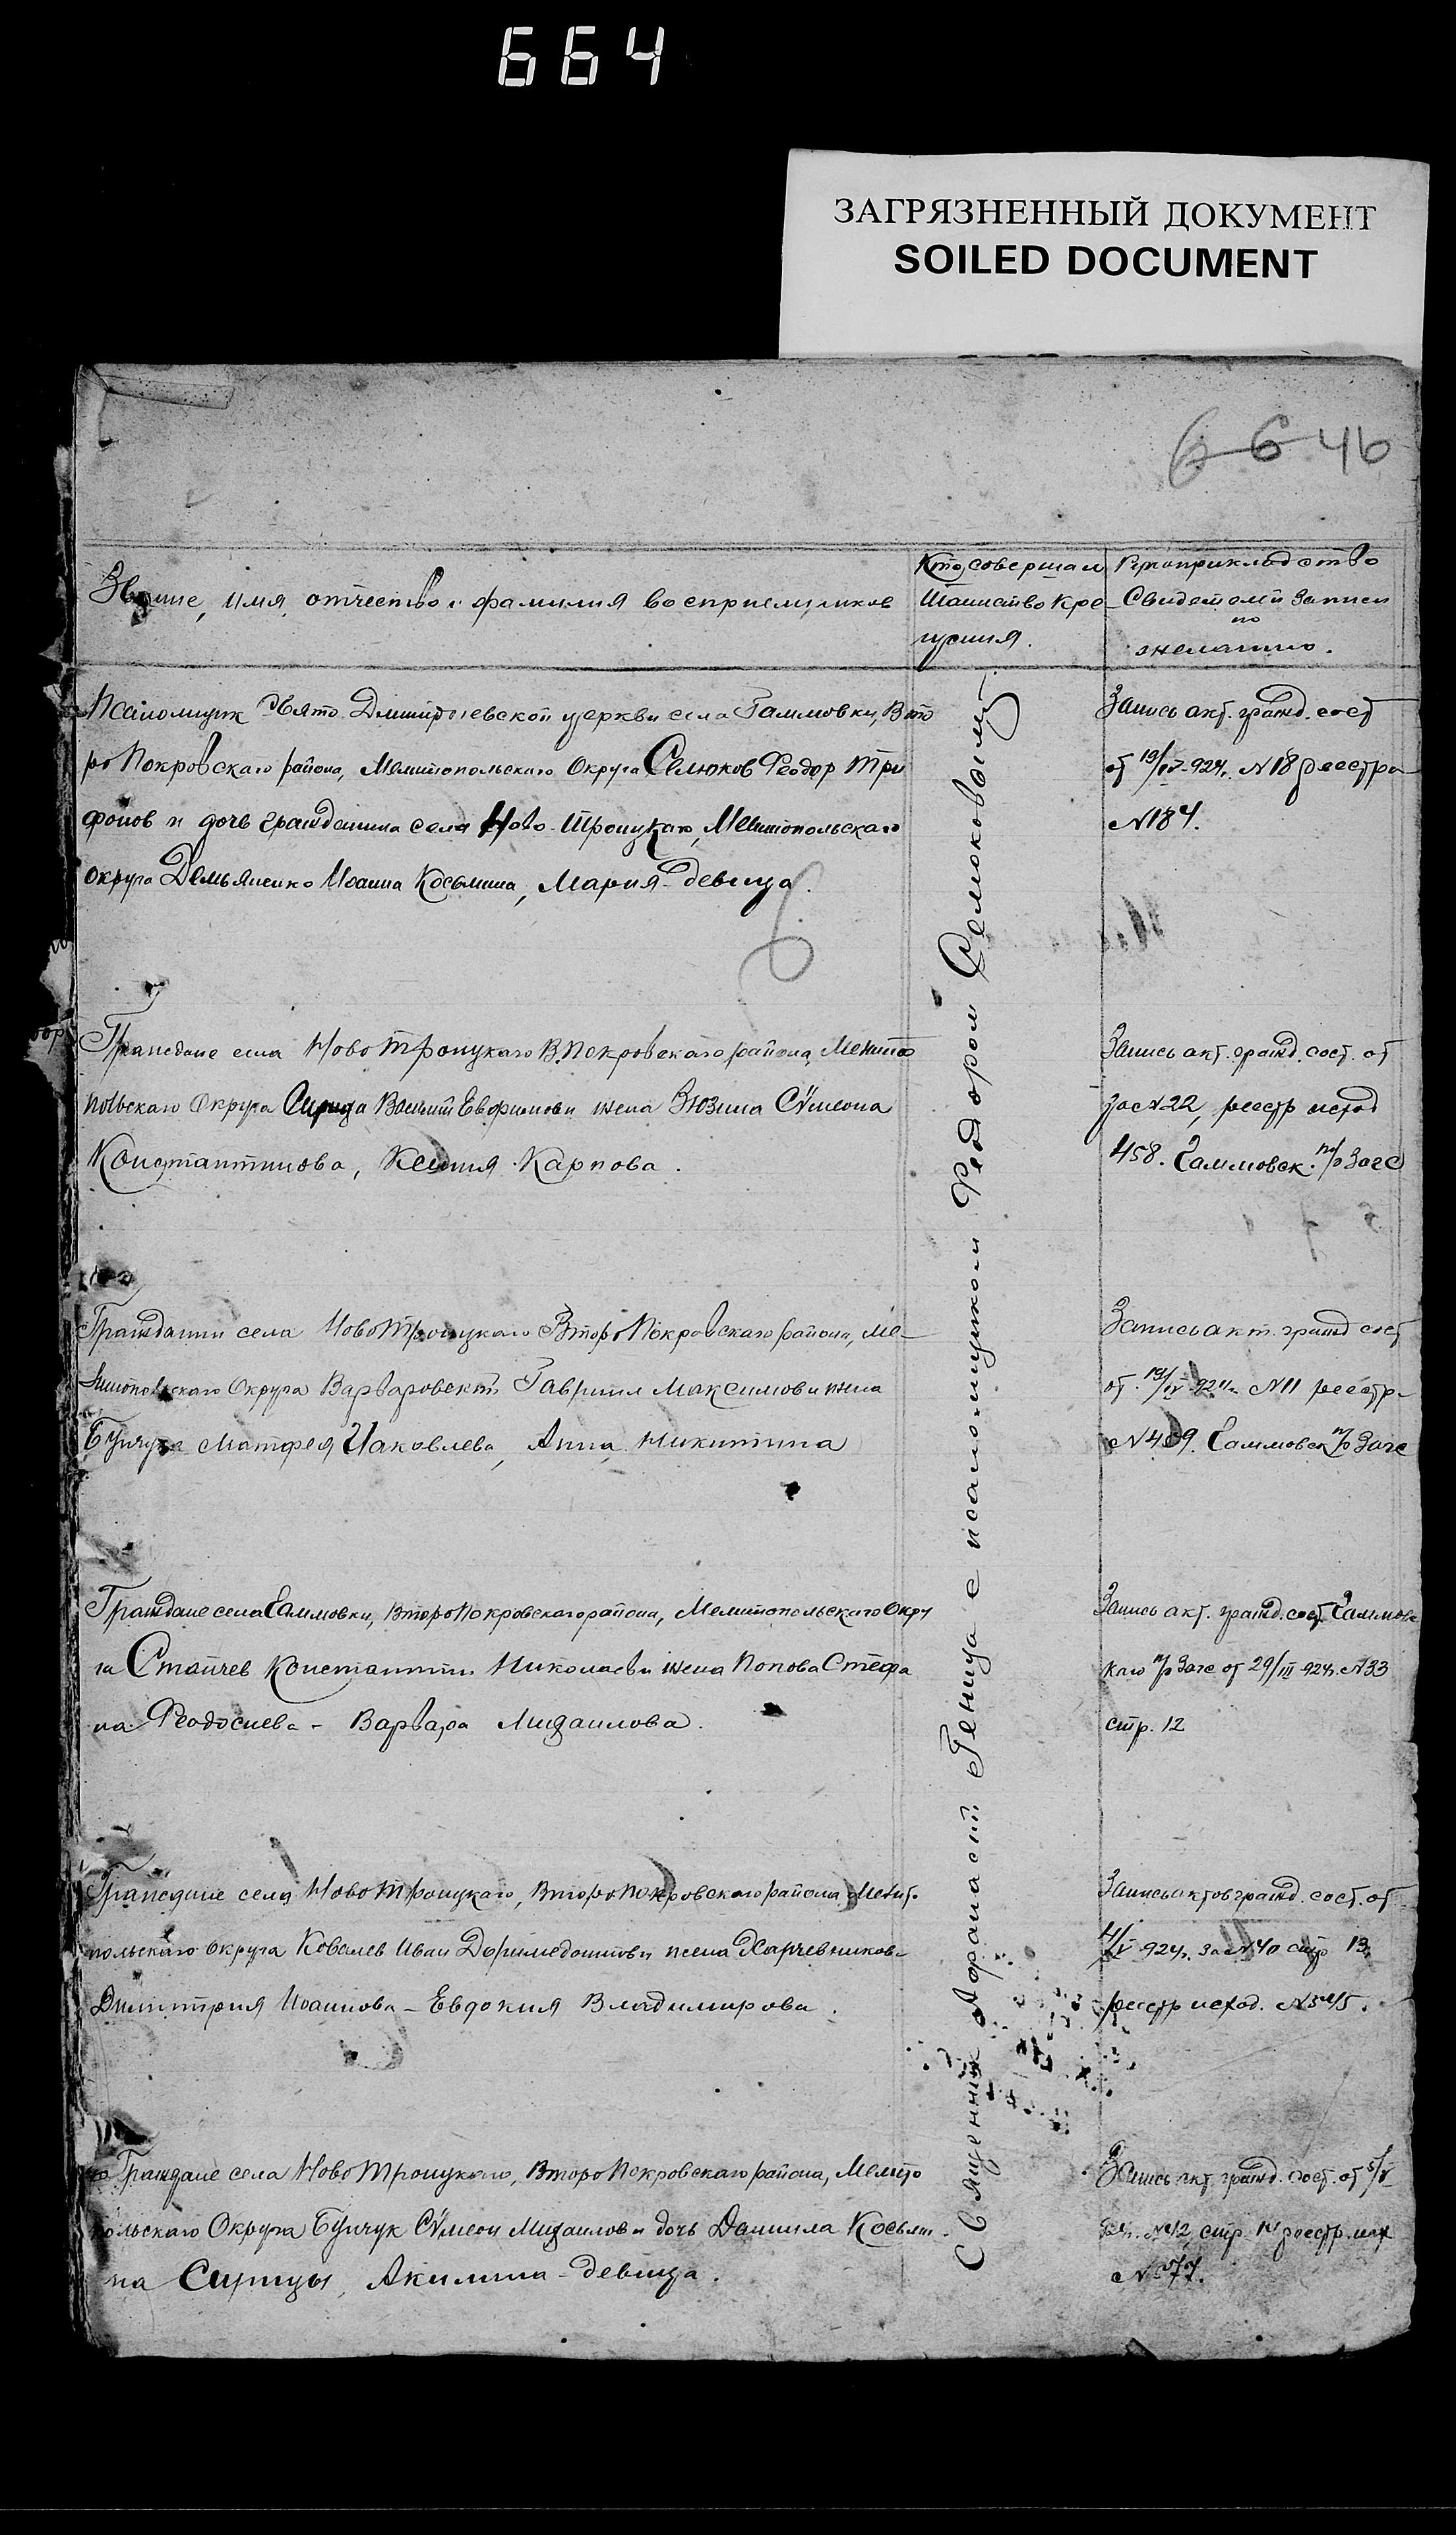 664
ЗАГРЯЗНЕННЫЙ ДОКУМЕНТ
SOILED DOCUMENT
6 6 46
Звание, имя, отчество и фамилия восприемников
Кто совершал
Таинство Кре-
щения.
Рукоприкладство
Свидетелей записи
по
желанию.
Псаломщик Свято Димитриевской церкви села Гаммовки, Вто
ро Покровскаго района, Мелитопольскаго Округа Селюков Феодор Три
фонов и дочь гражданина села Ново-Троицкаго, Мелитопольскаго
округа Демьяненко Иоанна Косьмина, Мария-девица.
Запись акт. гражд. сост
от 19/IV-924г. N18 реестра
N184.
Граждане села Ново Троицкаго В.Покровскаго района, Мелито
польскаго Округа Евфимов и жена Зюзина Сѵмеона
Константинова, Ксения Карпова.
Запись акт. гражд. сост. от
за N22, реестр исход
458. Гаммовск. п/р Загс
Гражданин села Ново Троицкаго Второ Покровскаго района, Ме-
литопольскаго Округа Варваровский Гавриил Максимов и жена
Бунчука Матфея Иаковлева, Анна Никитина
Запись акт. гражд сост
от 19/IV 924г. N11 реестр-
Гаммовск п/р Загс
Граждане села Гаммовки, Второ Покровскаго района, Мелитопольскаго Окру
га Стайчев Константин Николаев и жена Попова Стефа
на Феодосиева - Варвара Михаилова.
Запись акт. гражд. сост. Гаммовс
каго п/р Загс от 29/III-924г. N33
стр. 12
Граждане села Ново Троицкаго, Второ Покровскаго района Мелит
польскаго округа Ковалев Иван Доримедонтов и жена Харчевникова
Димитрия Иоаннова - Евдокия Владимирова.
Запись актов гражд. сост. от
924г. за N40 стр 13,
реестр исход.
Граждане села Ново Троицкаго, Второ Покровскаго района, Мелито
польскаго Округа Бунчук Сѵмеон Михаилов и дочь Даниила Косьми-
на Сирицы, Акилина-девица.
Запись акт. гражд. сост. от 5/V
N42, стр. 14 реестр. исх
Священник Афанасий Геница с псаломщиком Федором Селюковым